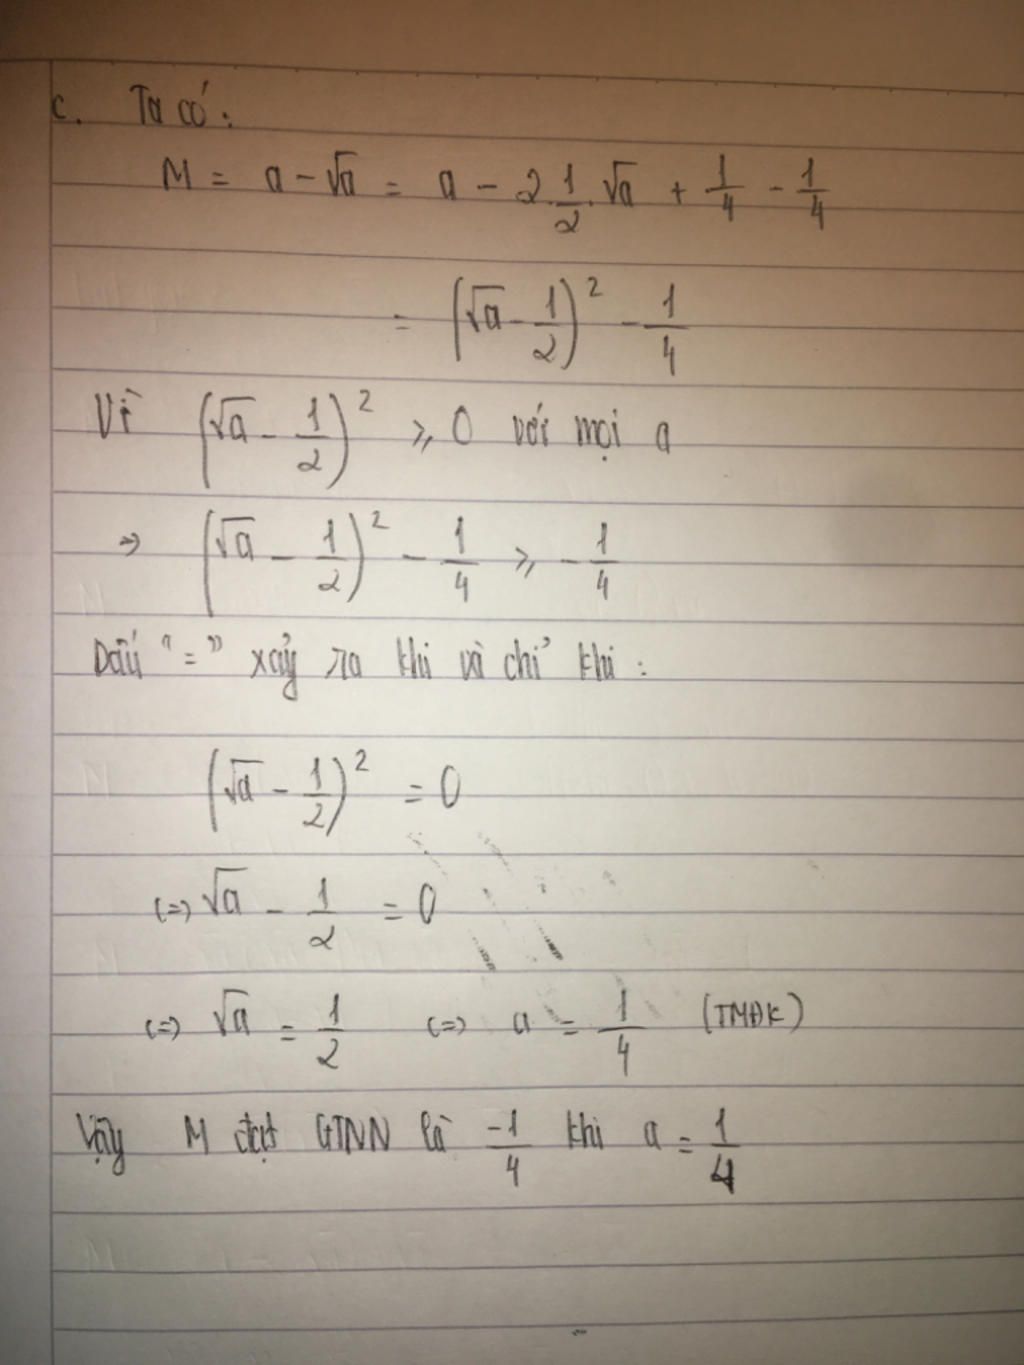 c. Ta có:
M = a - √a = a - 2.1/2.√a + 1/4 - 1/4
= (√a - 1/2)² - 1/4
Vì (√a - 1/2)² ⩾ 0 với mọi a
=> (√a - 1/2)² - 1/4 ⩾ - 1/4
Dấu "=" xảy ra khi và chỉ khi:
(√a - 1/2)² = 0
(=) √a - 1/2 = 0
(=) √a = 1/2 (=) a = 1/4 (TMĐK)
Vậy M đạt GTNN là -1/4 khi a = 1/4